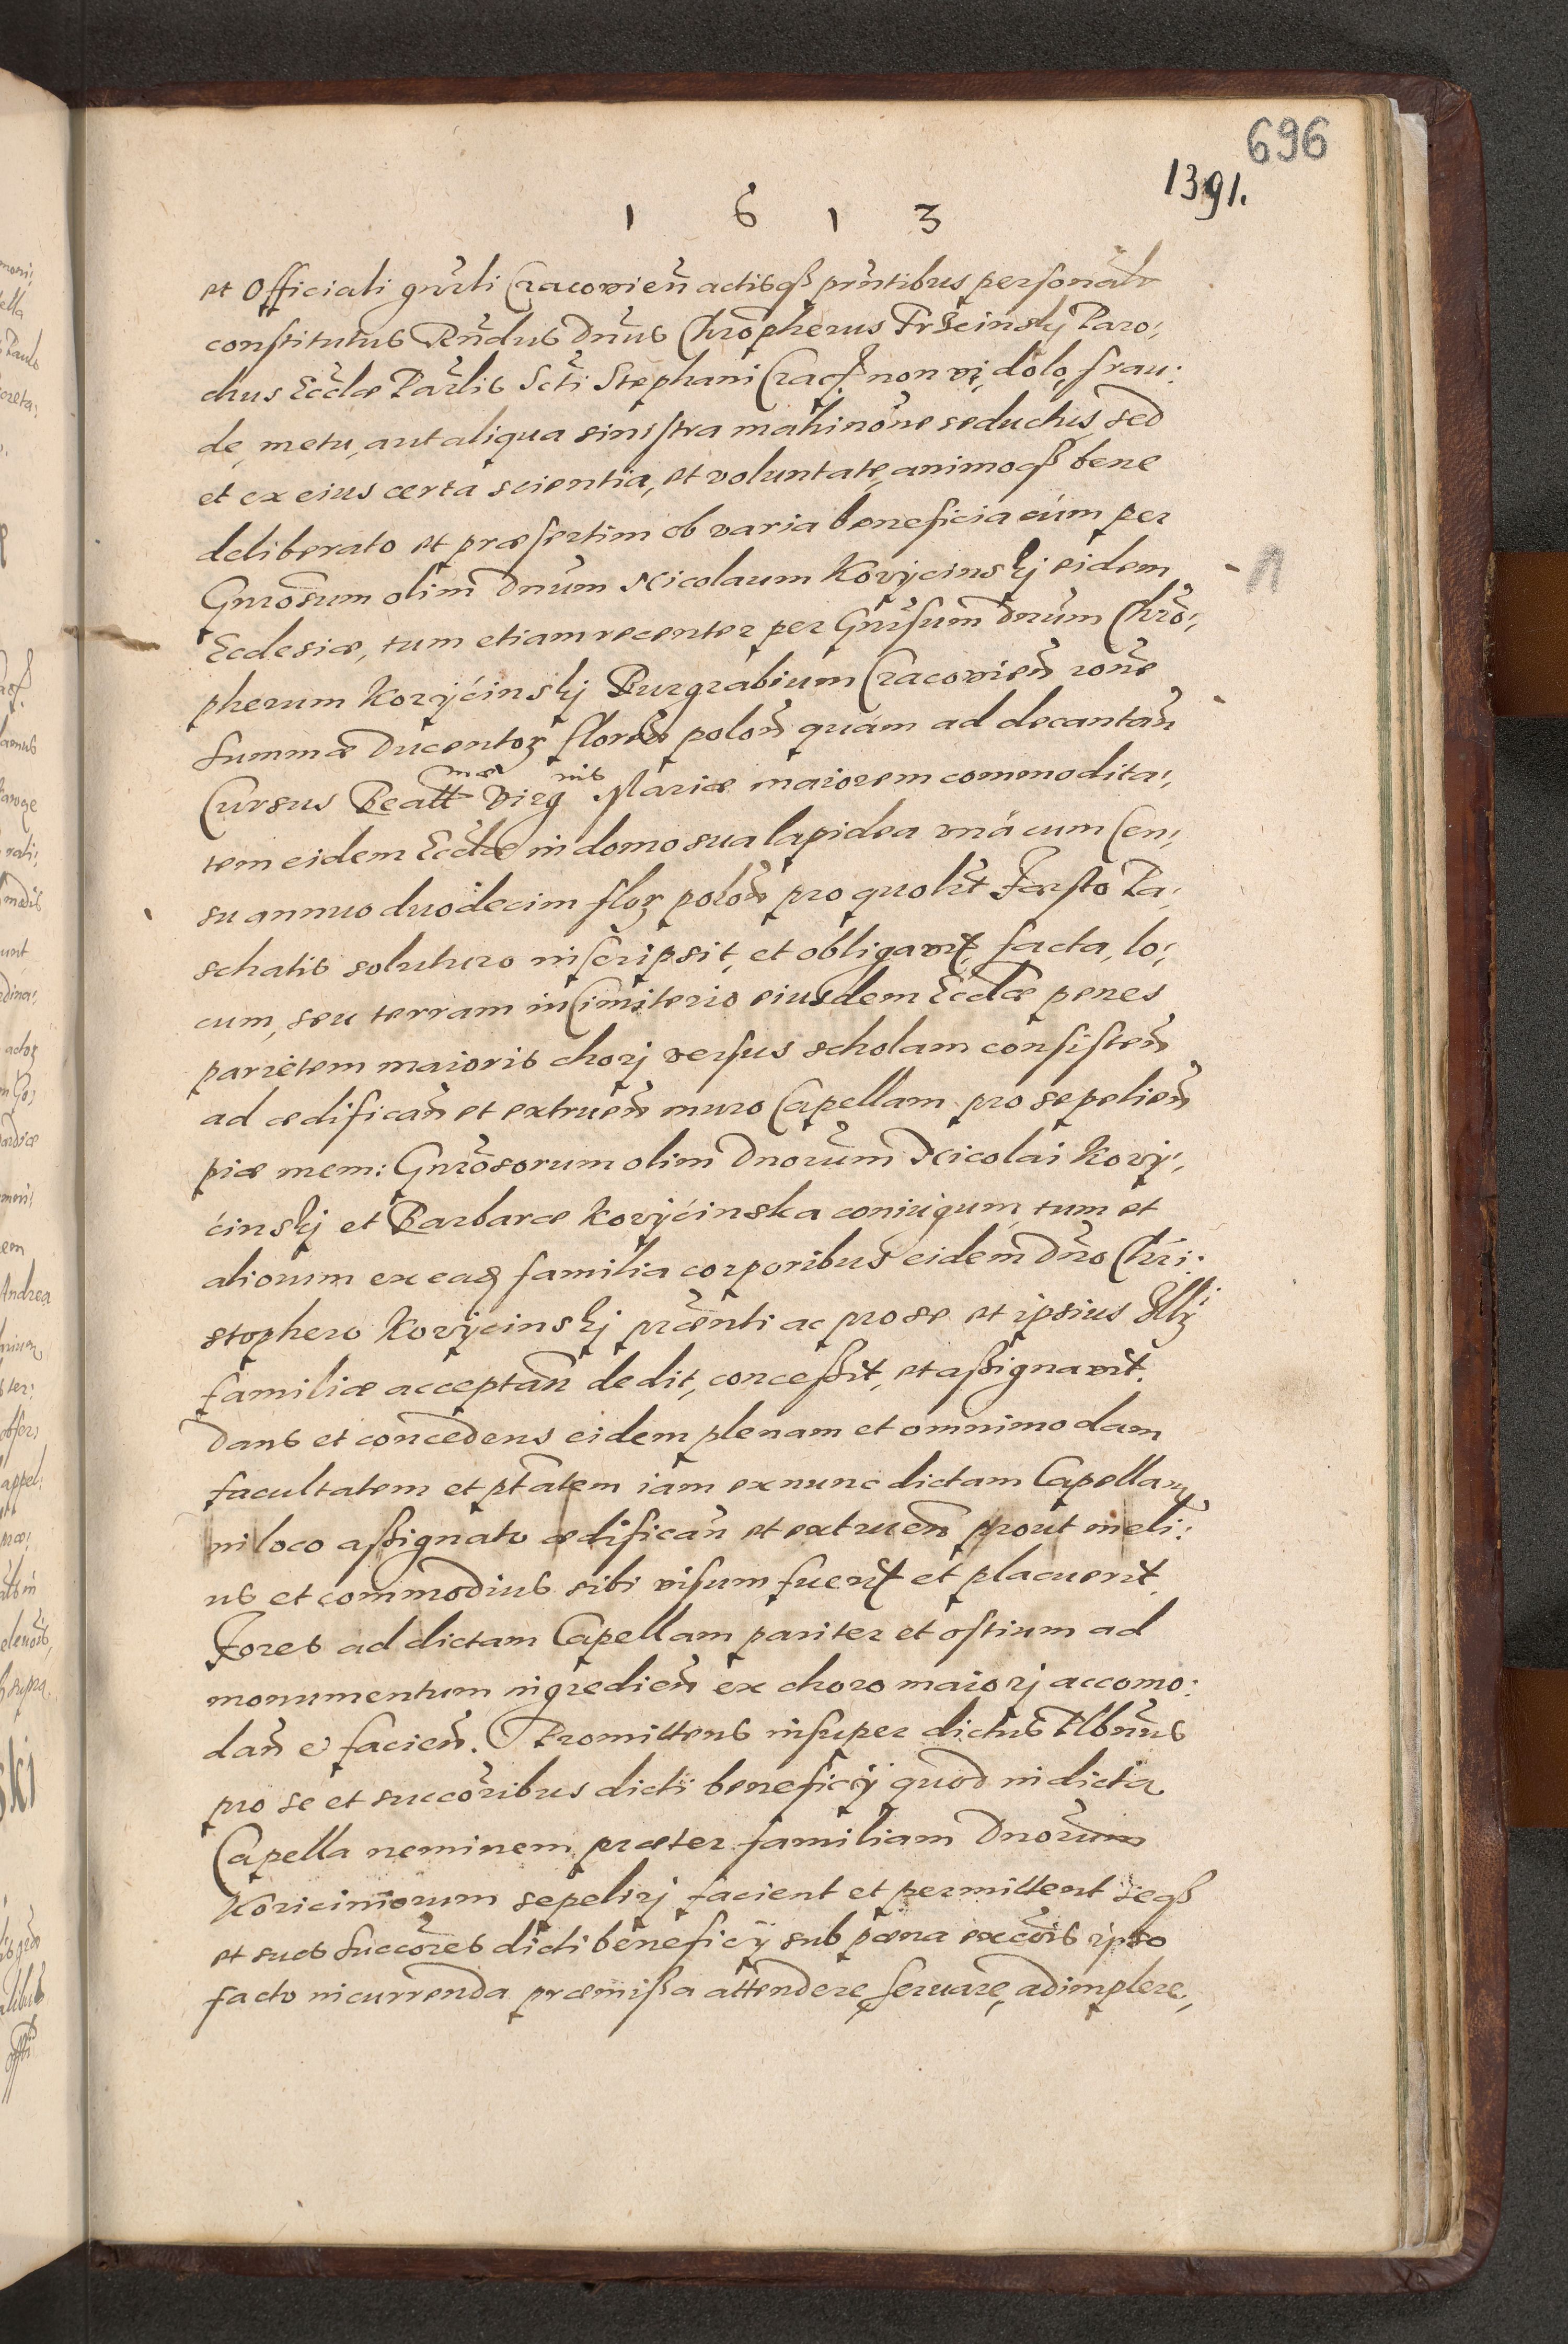 696
1391.
1 6 1 3
et Officiali gnrli Cracovien̄ actisq̃ pñtibus personalr
constitutus Rñdus Dñus Chrõpherus Trzcinskÿ Paro,
chus Ecclæ Parlis Scti Stephani Crac: non vi, dolo, frau:
de, metu, aut aliqua sinistra machinõne seductus, sed
et ex eius certa scientia, et voluntate, animoq̃ bene
deliberato et præsertim ob varia beneficia cùm per
Gnrõsum olim Dnum Nicolaum Korÿcinskj eidem
Ecclesiæ, tum etiam recenter per Gnrsum Dnum Chrõ,
pherum Korÿcinskj Burgrabium Cracovien̄ rõne
summæ Ducentoꝝ floren̄ polon̄ quàm ad decantan̄
mæ nis
Cursus Beatt Virg Mariæ maiorem commodita,
tem eidem Ecclæ in domo sua lapidea unà cum Cen,
su annuo duodecim floꝝ polon̄ pro quolit Festo Pa,
schatis soluturo inscripsit, et obligavit, facta, lo,
cum, seu terram in Cimiterio eiusdem Ecclæ penes
parietem maioris chorj versus scholam consisten̄
ad ædifican̄ et extruen̄ muro Capellam pro sepelien̄
piæ mem: Gnrõsorum olim Dnorum Nicolai Korÿ,
cinskj et Barbaræ Korÿcinska coniugum, tum et
aliorum ex eaq familia corporibus eidem Dño Chri:
stophero Korÿcinskj præñti ac pro se et ipsius
familiæ acceptan̄ dedit, concessit, et assignavit.
Dans et concedens eidem plenam et omnimodam
facultatem et ptatem iam ex nunc dictam Capellam
in loco assignato ædifican̄ et extruen̄ prout meli:
us et commodius sibi visum fuerit et placuerit.
Fores ad dictam Capellam pariter et ostium ad
monumentum ingredien̄ ex choro maiorj accomo:
dan̄ et facien̄. Promittens insuper dictus Plbnus
pro se et succõribus dicti beneficÿ quod in dicta
Capella neminem præter familiam Dnorum
Koriciniorum sepelirj facient et permittent seq̃
et suos succõres dicti beneficÿ sub pœna excõis ipso
facto incurrenda præmissa attendere, servare, adimplere,